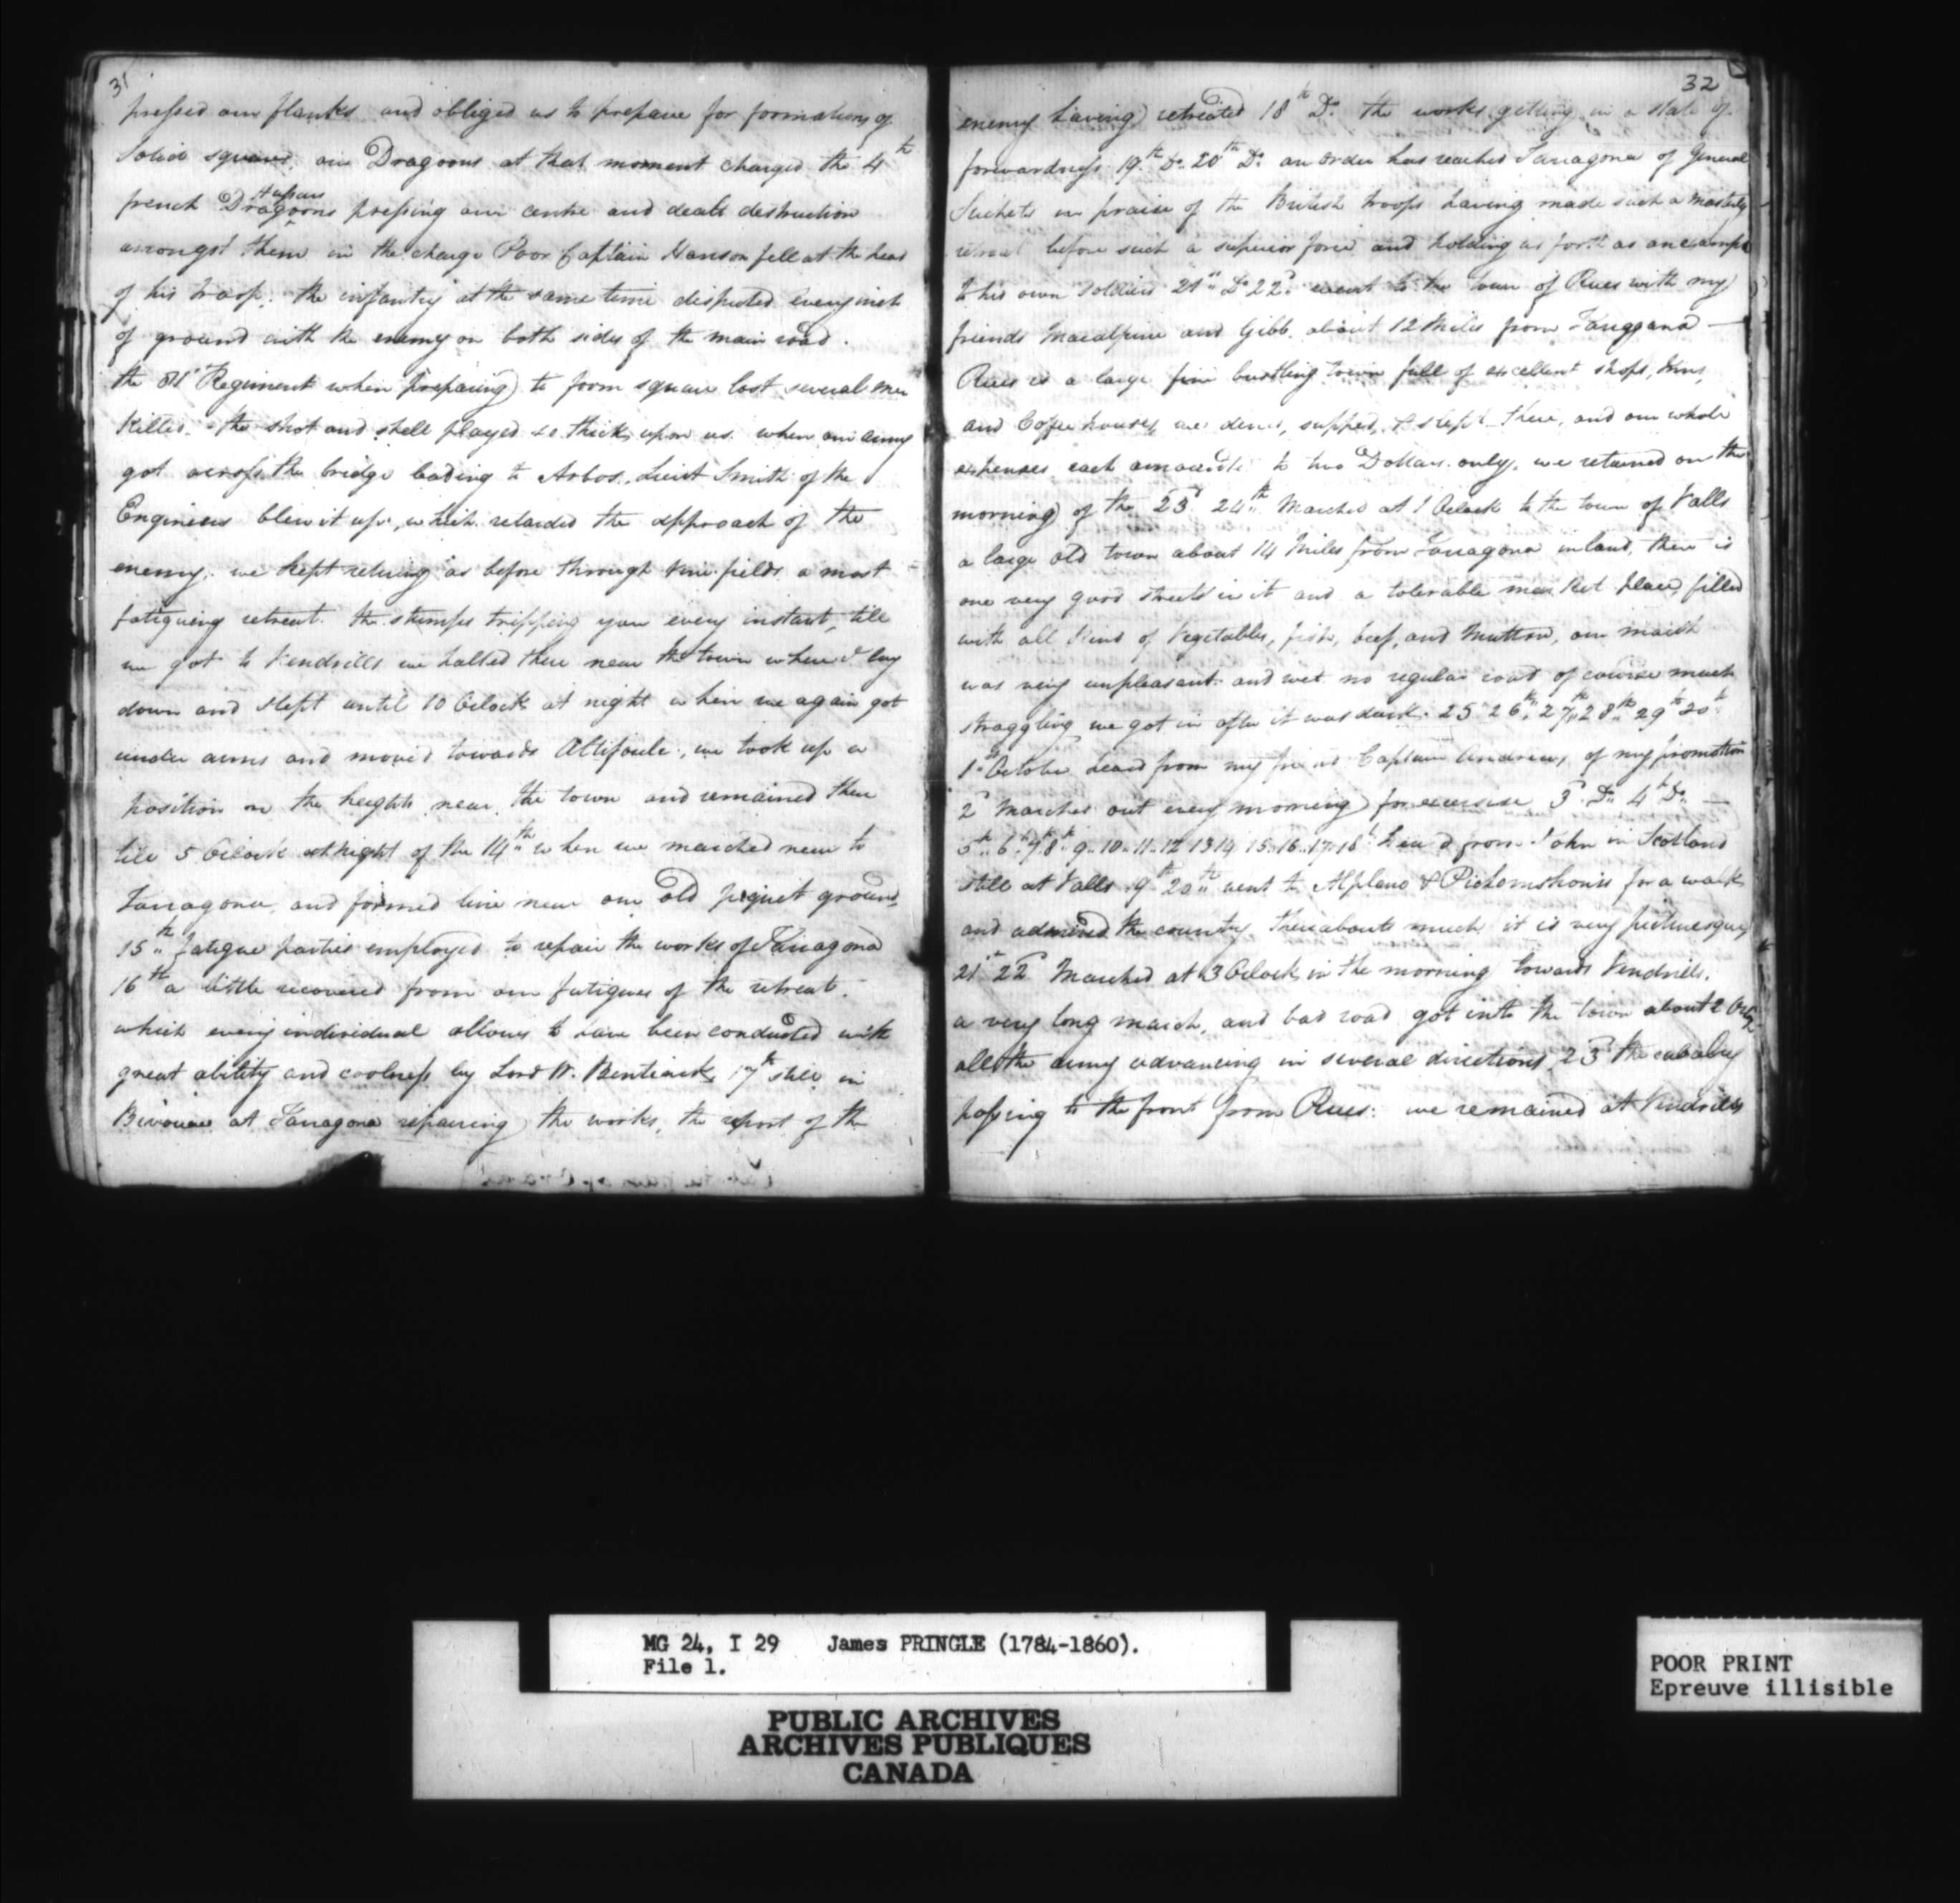 31
pressed our flanks and obliged us to prepare for formations of
solid square. our Dragoons at that moment charged the 4th
french Dragoons Hussars pressing our centre and dealt destruction
amongst them in the charge Poor Captain Hanson fell at the head
of his troop. the infantry at the same time disputed every inch
of ground with the enemy on both sides of the main road.
the 81st Regiment when preparing to form square lost several men
killed. the shot and shell played so thick upon us. when our army
got across the bridge leading to Arbos, Lieut Smith of the
Engineers blew it up, which retarded the approach of the
enemy. we kept retiring as before through vine fields a most
fatigueing retreat. the stumps tripping you every instant, till
we got to Vendrills we halted there near the town where I lay
down and slept until 10 Oclock at night when we again got
under arms and moved towards Altifoule, we took up a
position on the heights near the town and remained there
till 5 Oclock at night of the 14th when we marched near to
Tarragona, and formed line near our old piquet ground,
15th fatigue parties employed to repair the works of Tarragona
16th a little recovered from our fatigues of the retreat.
which every individual allows to have been conducted with
great ability and coolness by Lord W. Bentinck, 17th still in
Bivouac at Tarragona repairing the works, the report of the
32
enemy having retreated 18th Do. the works getting in a state of
forwardness 19th Do. 20th Do. an order has reached Tarragona of General
Suchets in praise of the British troops having made such a masterly
retreat before such a superior force and holding us forth as an example
to his own soldiers 21st Do 22d went to the town of Rues with my
friends Macalpine and Gibb. about 12 Miles from Targgona —
Rues is a large fine bustling town full of excellent shops, Inns,
and Coffee houses, we dined, supped, & slept there, and our whole
expenses each amounted to two Dollars only, we returned on the
morning of the 23d. 24th Marched at 1 Oclock to the town of Valls
a large old town about 14 Miles from Tarragona inland, there is
one very good street in it and a tolerable market place filled
with all kind of vegetables, fish, beef, and Mutton, our march
was very unpleasant and wet no regular road of course much
straggling we got in after it was dark. 25th 26th 27th 28th 29th 30th
1st October heard from my friend Captain Andrews of my promotion
2d Marched out every morning for exercise 3d Do 4th Do —
5th 6th 7th 8th 9 10 11 12 13 14 15 16 17 18th heard from John in Scotland
still at Valls 19th 20th went to Alplano & for a walk
and admired the country thereabouts much it is very picturesque
21st 22d Marched at 3 Oclock in the morning towards Vendrills.
a very long march, and bad road got into the town about 2
all the army advancing in several directions 23d the cabalry
passing to the front from Rues: we remained at Vendrills
MG 24, I 29 James PRINGLE (1784-1860).
File 1.
PUBLIC ARCHIVES
ARCHIVES PUBLIQUES
CANADA
POOR PRINT
Epreuve illisible